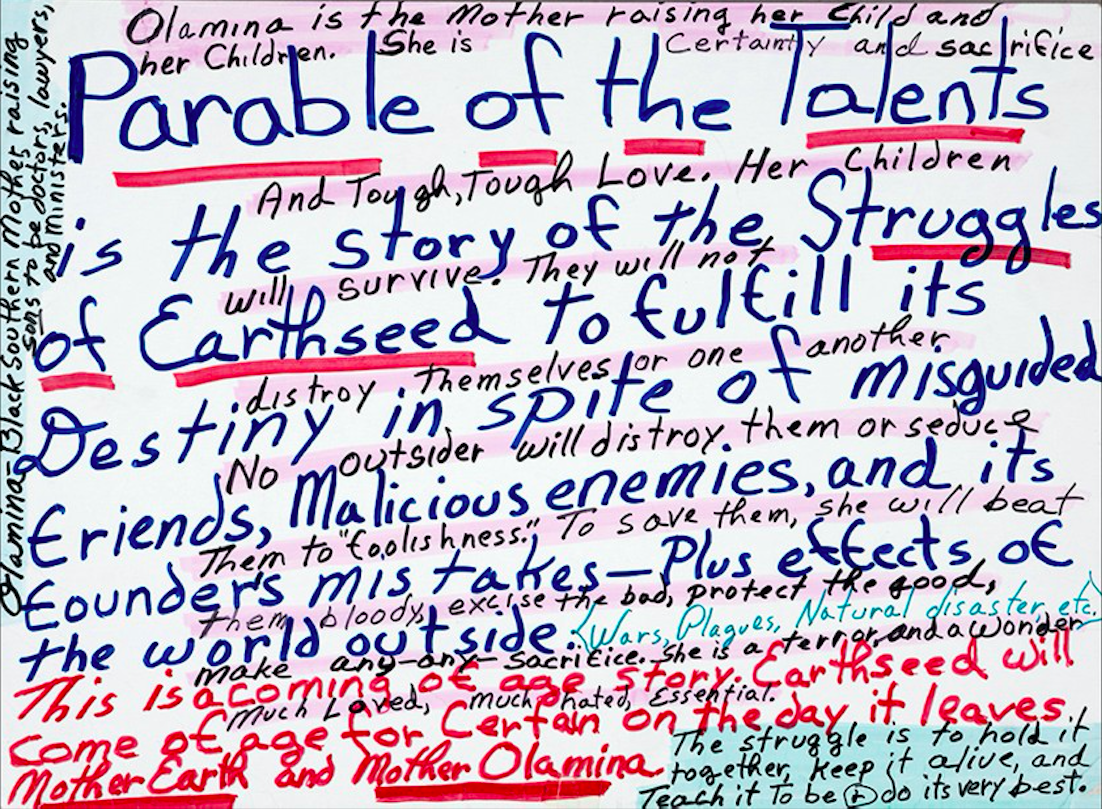 Parable of the Talents
is the story of the Struggles
of Earthseed to fulfill its
Destiny in spite of misguided
Friends, Malicious enemies, and its
Founder's mistakes—Plus effects of
the world outside.
(Wars, Plagues, Natural disaster, etc.)
This is a coming of age story. Earthseed will
come of age for Certain on the day it leaves
Mother Earth and Mother Olamina.
Olamina is the Mother raising her Child and
her Children. She is Certainty and sacrifice
And Tough, Tough Love. Her Children
will survive. They will not
distroy themselves or one another
No outsider will distroy them or seduce
Them to "foolishness." To save them, she will beat
them bloody, excise the bad, protect the good,
make any—any— sacrifice. She is a terror, and a wonder
Much Loved, much hated, Essential.
The struggle is to hold it
together, keep it alive, and
Teach it To be & do its very best.
Olamina–Black Southern Mother raising
sons to be doctors, lawyers,
and ministers.